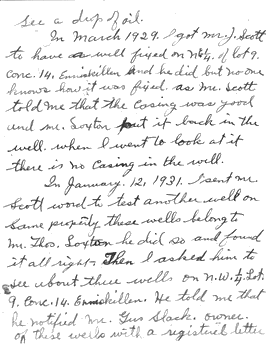 see a drop of oil.
In March 1929. I got Mr. J. Scott
to have a well fixed on N½ of lot 9.
Conc. 14. Enniskillen and he did but no one
knows how it was fixed. as Mr. Scott
told me that the Casing was good
and Mr. Loxton put it back in the
well. when I went to look at it
there is no Casing in the well.
In January. 12, 1931. I sent Mr.
Scott word to test another well on
same property these wells belong to
Mr. Thos. Loxton he did so and found
it all right. Then I asked him to
see about three wells on N.W.¼ Lot.
9. Conc. 14. Enniskillen. He told me that
he notified Mr. Gus Slack. owner.
of these wells with a registred letter